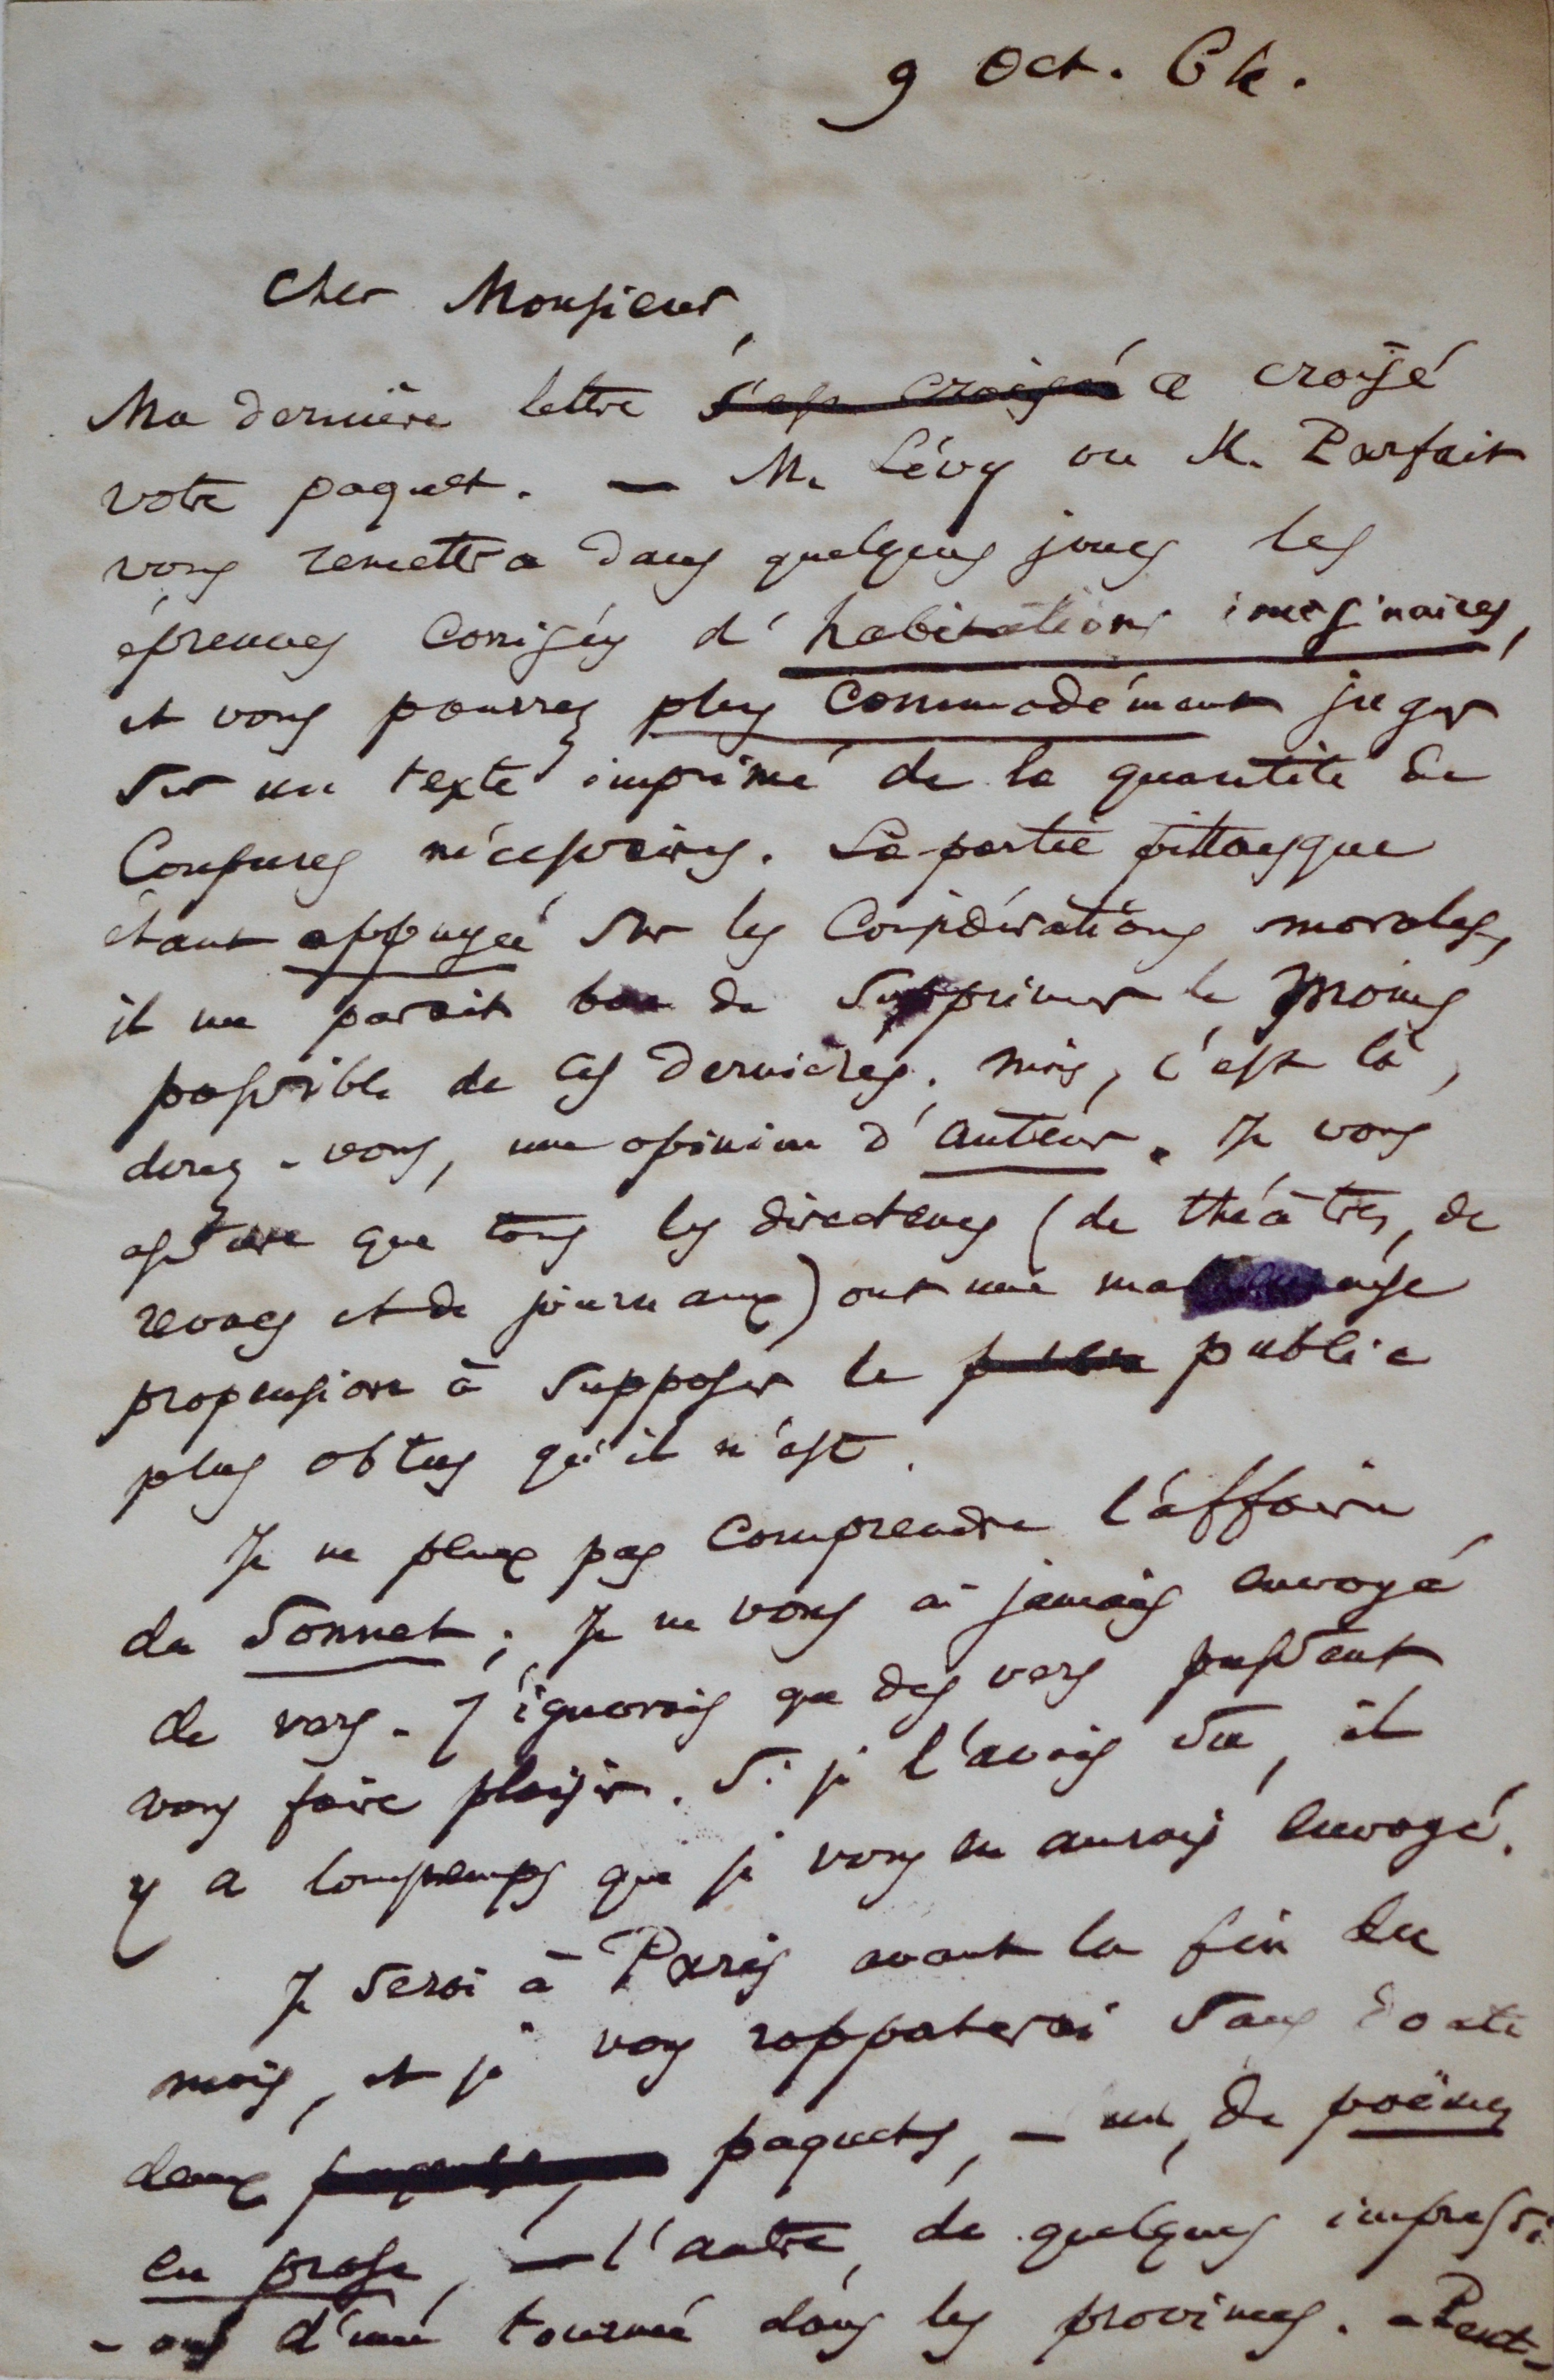 9 Oct. 64.
Cher Monsieur,
Ma dernière lettre s'est croisée a croisé
votre paquet. — M. Lévy ou M. Parfait
vous remettra dans quelques jours les
épreuves corrigées d'habitations imaginaires,
et vous pourrez plus commodément juger
sur un texte imprimé de la quantité de
coupures nécessaires. La partie pittoresque
étant appuyée sur les considérations morales,
il me paraît bon de supprimer le moins
possible de ces dernières. mais, c'est là,
direz-vous, une opinion d'auteur. Je vous
assure que tous les directeurs (de théâtres, de
revues et de journaux) ont une
propension à supposer le public
plus obtus qu'il n'est.
Je ne peux pas comprendre l'affaire
du Sonnet; Je ne vous ai jamais envoyé
de vers. J'ignorais que des vers pussent
vous faire plaisir. Si je l'avais su, il
y a longtemps que je vous en aurais envoyé.
Je serai à Paris avant la fin du
mois, et je vous rapporterai sans doute
deux paquets, — un, de poëmes
en prose, — l'autre, de quelques impressi
-ons d'une tournée dans les provinces. — Peut-